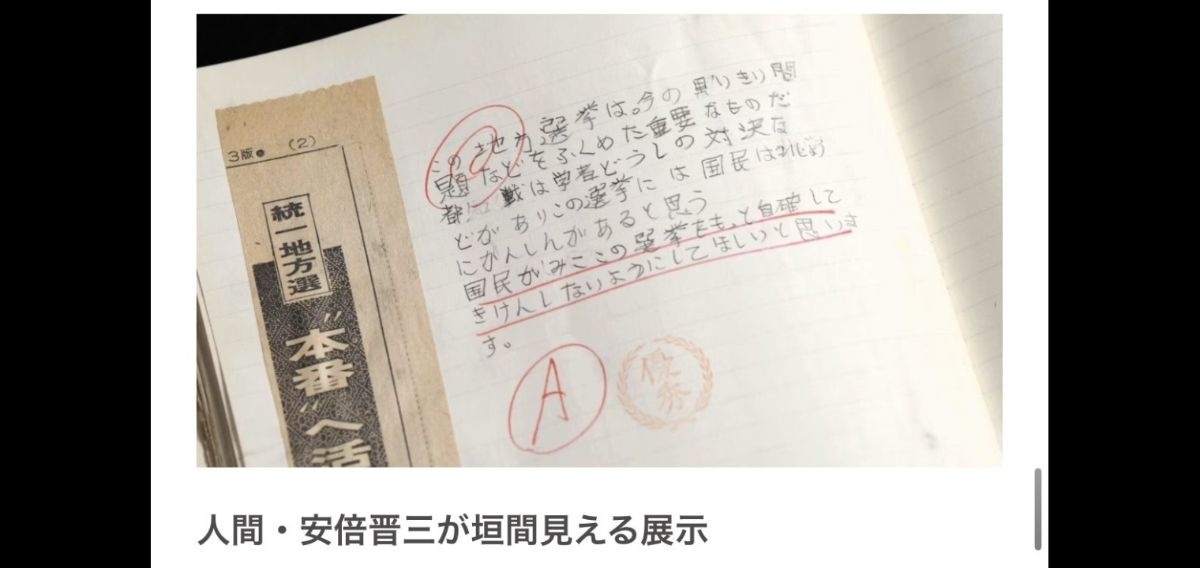 3版● (2)
統一地方選
"本番"へ活
この地方選挙は。今の黒いきり問
題などをふくめた重要なものだ
都 戦は学者どうしの対決な
どがありこの選挙には国民は
にがんしんがあると思う
国民がみこの選挙をもっと自確して
きけんしないようにしてほしいと思いま
す。
A
優秀
人間・安倍晋三が垣間見える展示